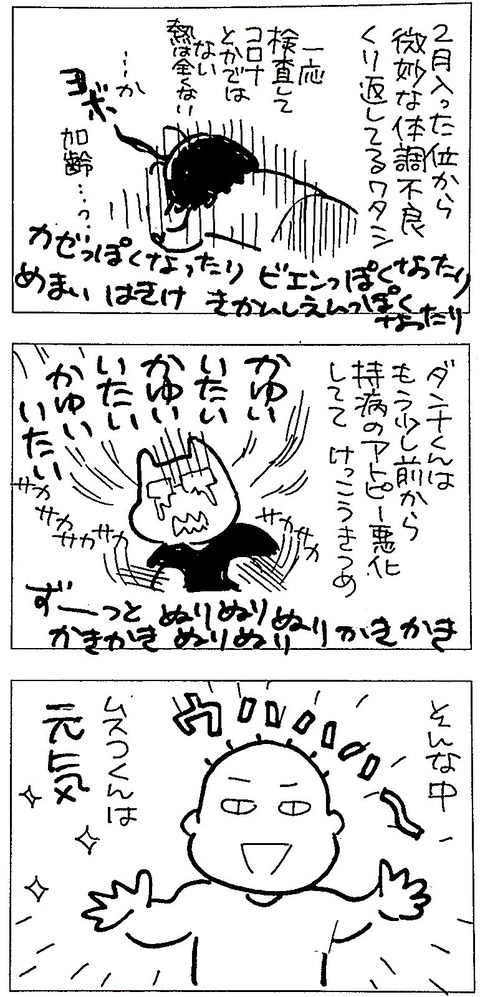 2月入った位から
微妙な体調不良
くり返してるワタシ
一応
検査して
コロナ
とかでは
ない
熱は全くない
…か
ヨボ
加齢…っ…
カゼっぽくなったり ビエンっぽくなったり
めまい はきけ きかんしえんっぽく
なったり
ダンナくんは
もう少し前から
持病のアトピー悪化
してて けっこうきつめ
かゆい
いたい
かゆい
いたい
かゆい
いたい
サカ
サカ
サカサカ
サカ
サカ
ずーっと ぬりぬりぬり かきかき
かきかき ぬりぬり
そんな中
ムスコくんは
元気